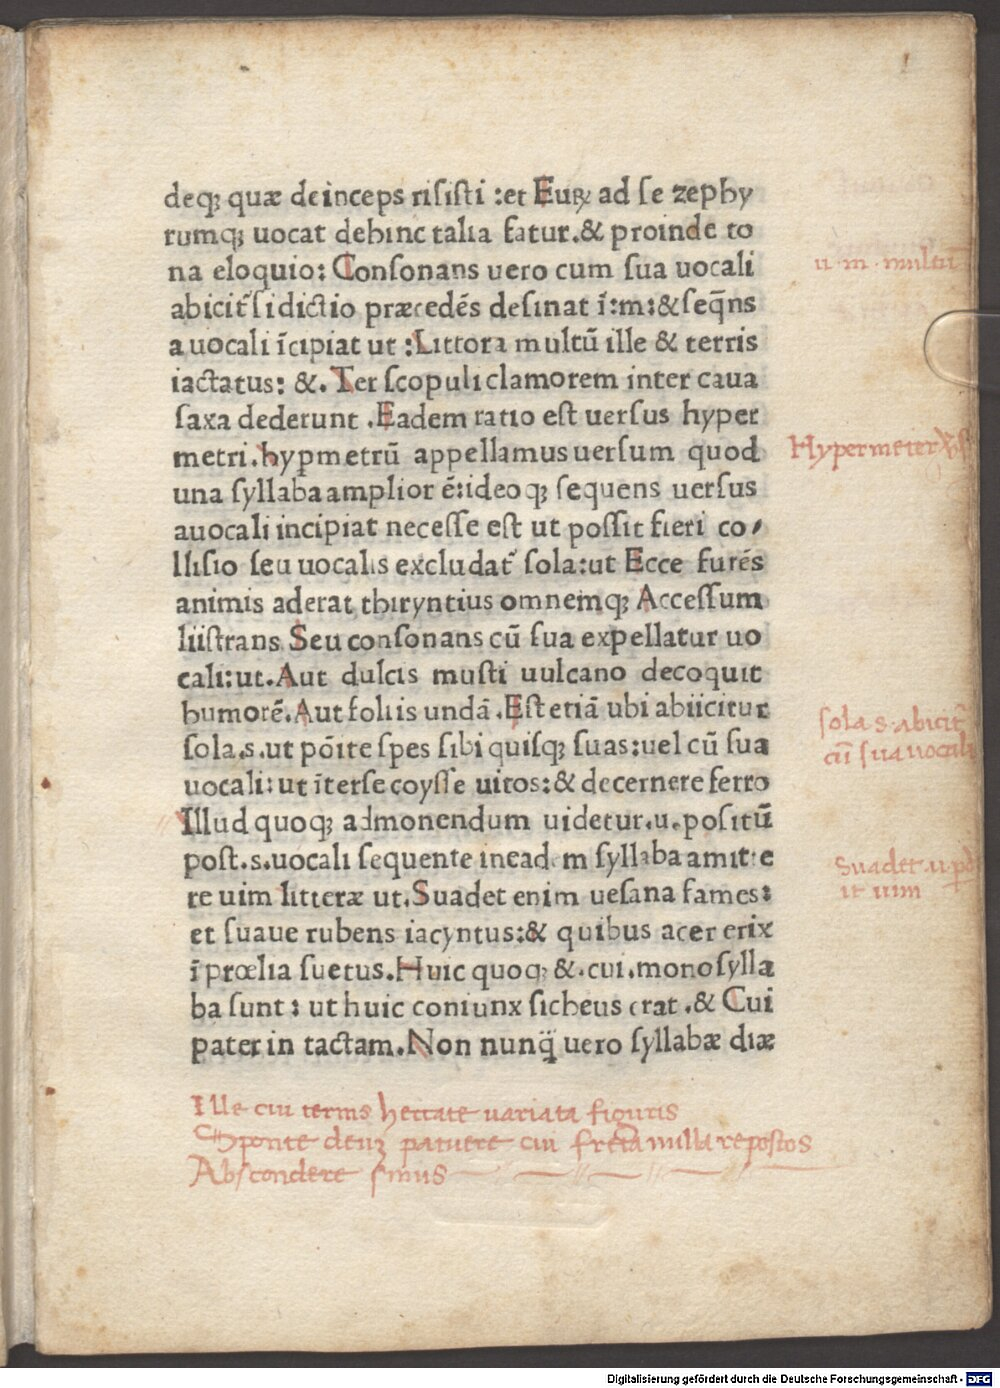 deqꝫ quæ deinceps risisti :et Euꝝ ad se zephy
rumqꝫ uocat dehinc talia fatur.& proinde to
na eloquio: Consonans uero cum sua uocali
abicit᷑ si dictio præcedēs desinat ī:m:& seq̄ns
a uocali īcipiat ut :Littora multū ille & terris
iactatus: &. Ter scopuli clamorem inter caua
saxa dederunt .Eadem ratio est uersus hyper
metri.hypmetrū appellamus uersum quod
una syllaba amplior ē:ideoqꝫ sequens uersus
auocali incipiat necesse est ut possit fieri co⸗
llisio seu uocalis excludat᷑ sola:ut Ecce furēs
animis aderat thiryntius omnemqꝫ Accessum
lüstrans Seu consonans cū sua expellatur uo
cali:ut.Aut dulcis musti uulcano decoquit
humorē.Aut foliis undā.Est etiā ubi abiicitur
sola.s.ut pōite spes sibi quisqꝫ suas:uel cū sua
uocali:ut īterse coysse uiros:& decernere ferro
Illud quoqꝫ admonendum uidetur.u.positū
post.s.uocali sequente ineadem syllaba amitte
re uim litteræ ut.Suadet enim uesana fames:
et suaue rubens iacyntus:& quibus acer erix
ī prœlia suetus.Huic quoqꝫ &.cui.monosylla
ba sunt : ut huic coniunx sicheus erat .& Cui
pater in tactam.Non nunq̈ uero syllabæ diæ
u·m·multū
Hypermeter
sola·s·abicit᷑
cū sua uocali
Suadet·u·pdit uim
Ille cui ternis heccate uariata figuris
Sponte deuꝫ patuere cui freta nulla repostos
Abscondere sinus
Digitalisierung gefördert durch die Deutsche Forschungsgemeinschaft - DFG